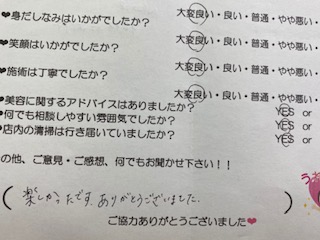 ❤身だしなみはいかがでしたか？ 大変良い・良い・普通・やや悪い・
❤笑顔はいかがでしたか？ 大変良い・良い・普通・やや悪い・
❤施術は丁寧でしたか？ 大変良い・良い・普通・やや悪い・
❤美容に関するアドバイスはありましたか？ YES or
❤何でも相談しやすい雰囲気でしたか？ YES or
❤店内の清掃は行き届いていましたか？ YES or
の他、ご意見・ご感想、何でもお聞かせ下さい！！
(楽しかったです。ありがとうございました。
ご協力ありがとうございました❤